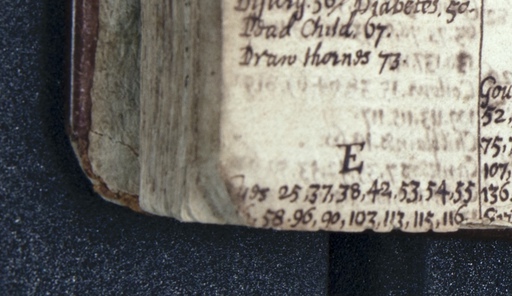 Disury. 56. Diabetes, 50.
Dead Child. 67.
Draw thornes 73.
E
Eyes 25, 37, 38, 42, 53, 54, 55
58. 96, 90, 103, 113, 115, 116
Gou
52,
75, 7
107,
136.